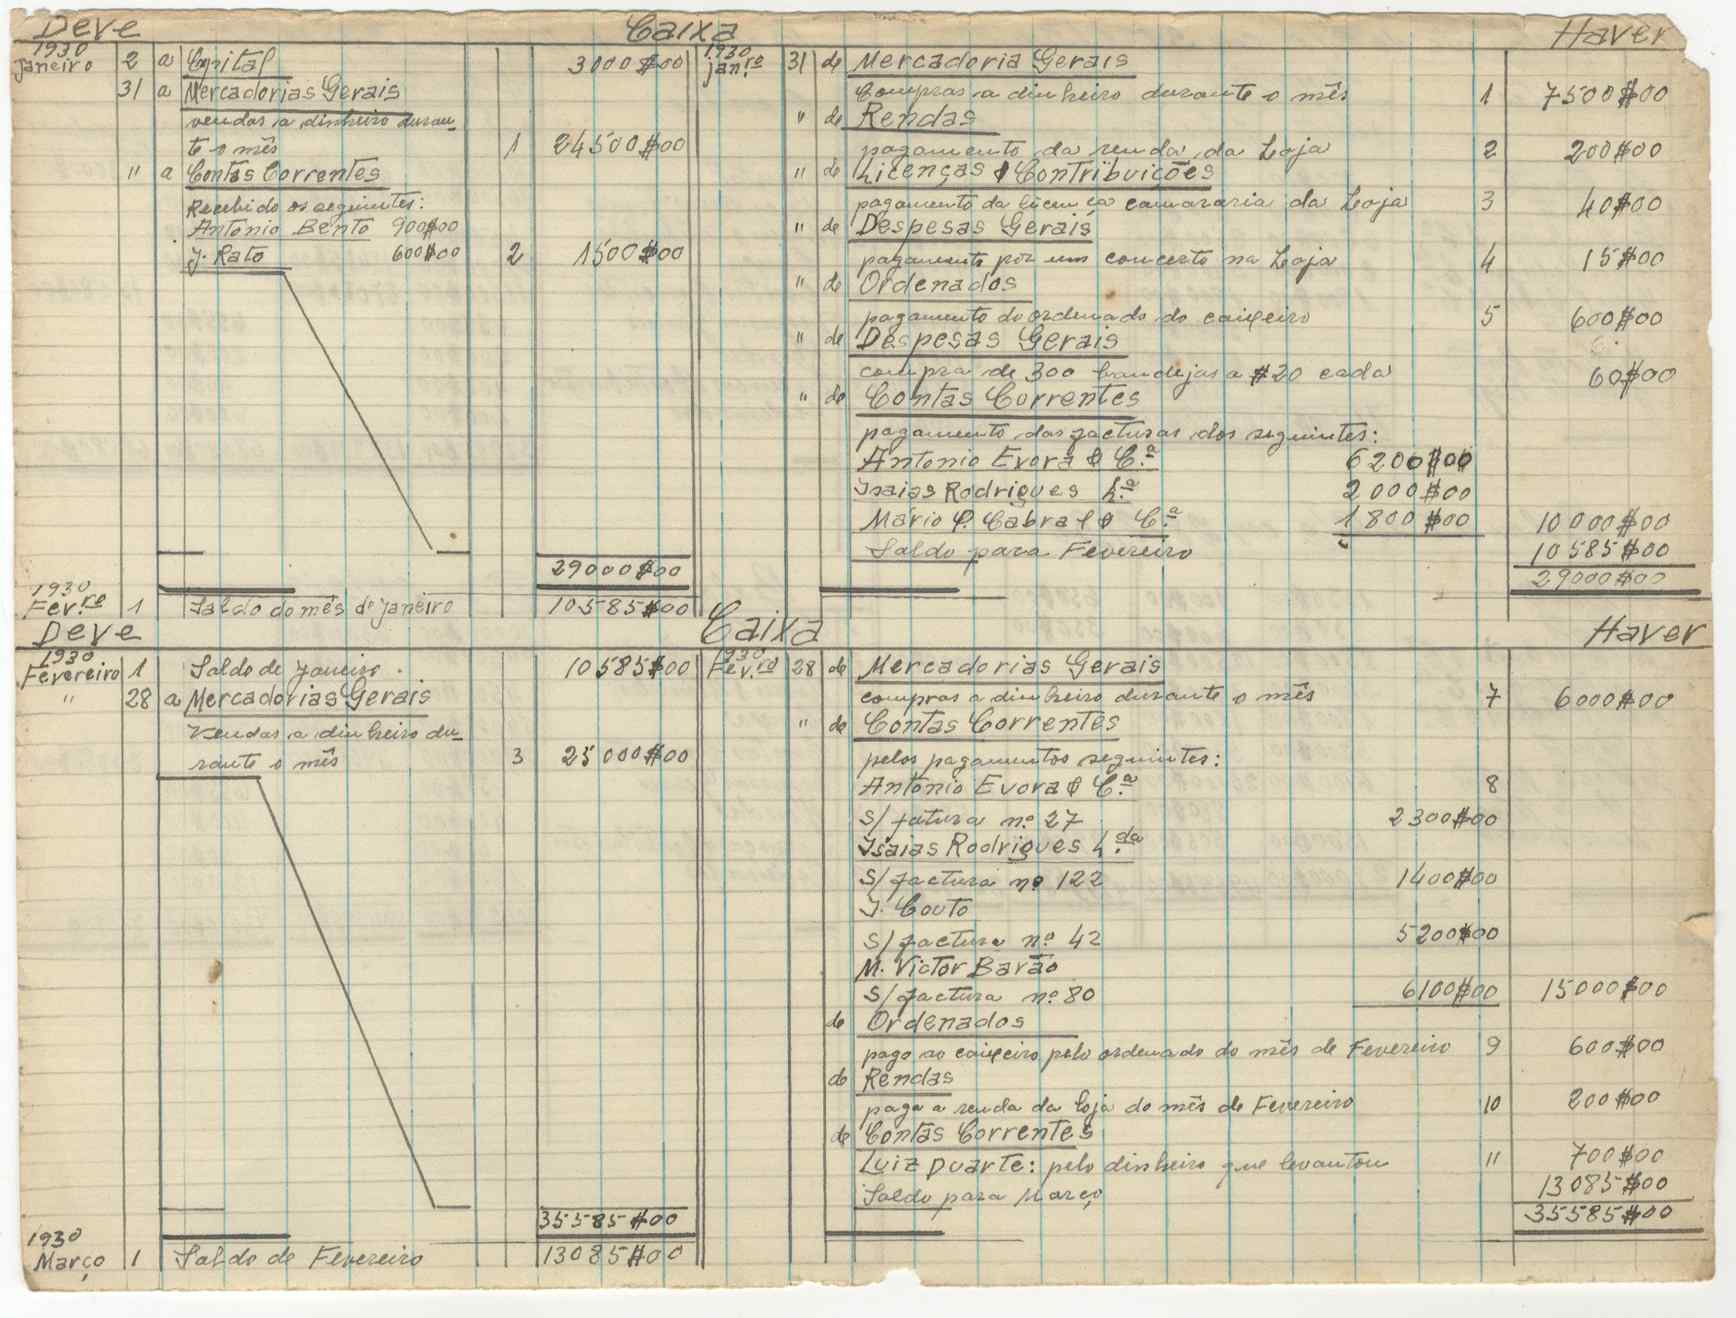 Deve Caixa Haver
1930
Janeiro 2 a Capital 3000$00
31 a Mercadorias Gerais
vendas a dinheiro duran-
te o mês 1 24500$00
" a Contas Correntes
Recebido os seguintes:
Antonio Bento 900$00
J. Rato 600$00 2 1500$00
29000$00
1930
Fev.ro 1 Saldo do mês de Janeiro 10585$00
1930
jan.ro 31 de Mercadoria Gerais
Compras a dinheiro durante o mês 1 7500$00
" de Rendas
pagamento da renda da Loja 2 200$00
" de Licenças & Contribuições
pagamento da licença camararia da Loja 3 40$00
" de Despesas Gerais
pagamento por um concerto na Loja 4 15$00
" de Ordenados
pagamento do ordenado do caixeiro 5 600$00
" de Despesas Gerais
compra de 300 bandejas a $20 cada 60$00
" de Contas Correntes
pagamento das facturas dos seguintes:
Antonio Evora & C.ª 6200$00
Isaias Rodrigues L.ª 2000$00
Mário P. Cabral & C.ª 1800$00 10000$00
Saldo para Fevereiro 10585$00
29000$00
Deve Caixa Haver
1930
Fevereiro 1 Saldo de Janeiro 10585$00
" 28 a Mercadorias Gerais
Vendas a dinheiro du-
rante o mês 3 25000$00
35585$00
1930
Março 1 Saldo de Fevereiro 13085$00
1930
Fev.ro 28 de Mercadorias Gerais
compras a dinheiro durante o mês 7 6000$00
" de Contas Correntes
pelos pagamentos seguintes:
Antonio Evora & C.ª 8
S/ fatura nº 27 2300$00
Isaias Rodrigues L.da
S/ factura nº 122 1400$00
J. Couto
S/ factura nº 42 5200$00
M. Victor Barão
S/ factura nº 80 6100$00 15000$00
de Ordenados
pago ao caixeiro pelo ordenado do mês de Fevereiro 9 600$00
de Rendas
paga a renda da loja do mês de Fevereiro 10 200$00
de Contas Correntes
Luiz Duarte: pelo dinheiro que levantou 11 700$00
Saldo para Março 13085$00
35585$00